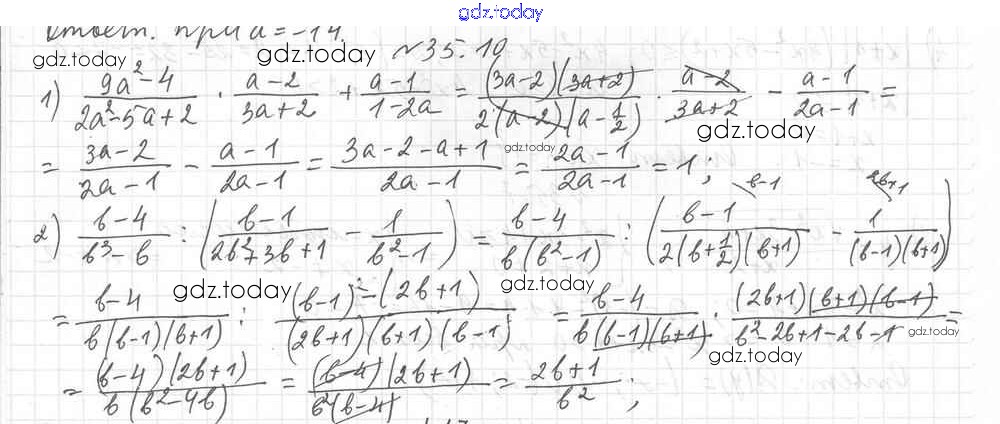 gdz.today
Ответ. при a = -14.
gdz.today
gdz.today
№35.10
1) (9a² - 4)/(2a² - 5a + 2) · (a - 2)/(3a + 2) + (a - 1)/(1 - 2a) = ((3a - 2)(3a + 2))/(2(a - 2)(a - 1/2)) · (a - 2)/(3a + 2) - (a - 1)/(2a - 1) =
gdz.today
= (3a - 2)/(2a - 1) - (a - 1)/(2a - 1) = (3a - 2 - a + 1)/(2a - 1) = (2a - 1)/(2a - 1) = 1;
gdz.today
2) (b - 4)/(b³ - b) : ((b - 1)/(2b² + 3b + 1) - 1/(b² - 1)) = (b - 4)/(b(b² - 1)) : ((b - 1)\b-1/(2(b + 1/2)(b + 1)) - 1\2b+1/((b - 1)(b + 1)))
gdz.today
= (b - 4)/(b(b - 1)(b + 1)) : ((b - 1)² - (2b + 1))/((2b + 1)(b + 1)(b - 1)) = (b - 4)/(b(b - 1)(b + 1)) · ((2b + 1)(b + 1)(b - 1))/(b² - 2b + 1 - 2b - 1) =
gdz.today
gdz.today
= ((b - 4)(2b + 1))/(b(b² - 4b)) = ((b - 4)(2b + 1))/(b²(b - 4)) = (2b + 1)/b²;